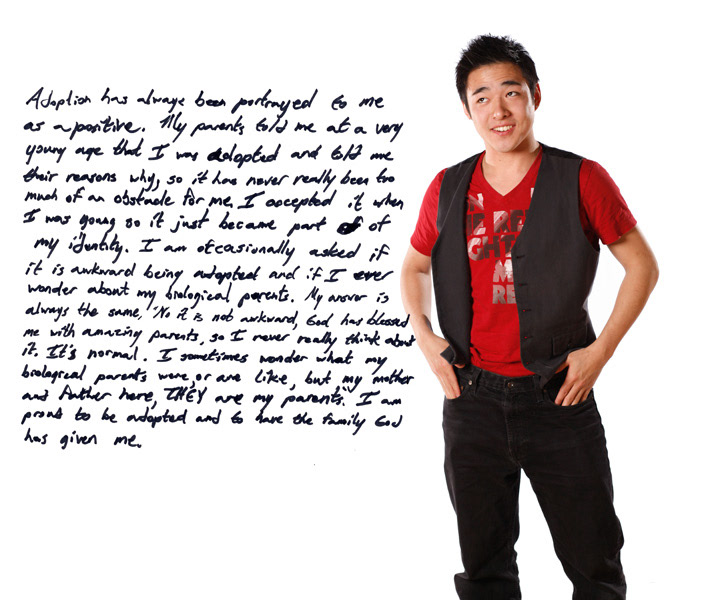 Adoption has always been portrayed to me
as a positive. My parents told me at a very
young age that I was adopted and told me
their reasons why, so it has never really been too
much of an obstacle for me. I accepted it when
I was young so it just became part of
my "identity. I am occasionally asked if
it is awkward being adopted and if I ever
wonder about my biological parents. My answer is
always the same, "No it is not awkward, God has blessed
me with amazing parents, so I never really think about
it. It's normal. I sometimes wonder what my
biological parents were, or are like, but, my mother
and father here, THEY are my parents." I am
proud to be adopted and to have the family God
has given me.
RE
GHT
M
RE